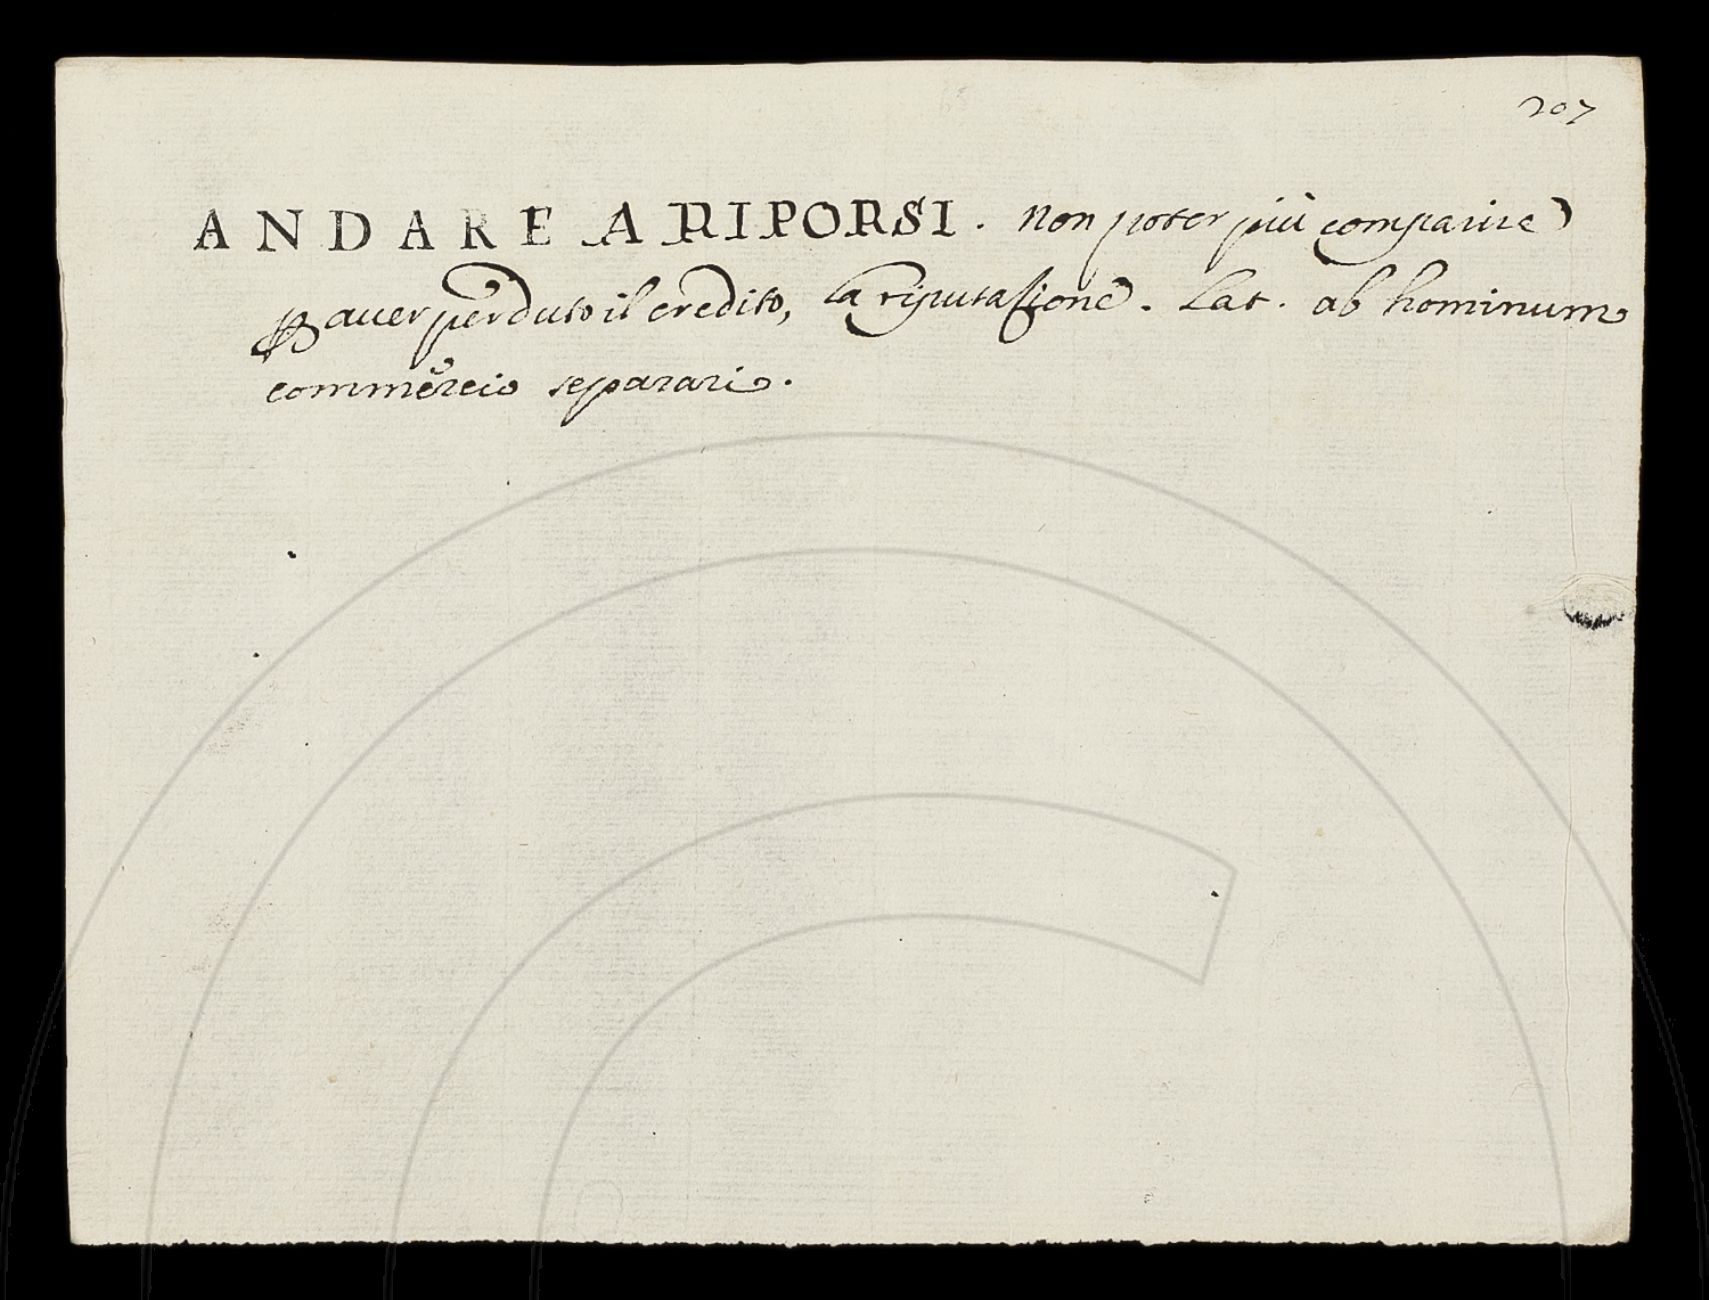 207
ANDARE A RIPORSI. Non poter più comparire
ꝑ auer perduto il credito, la riputasione. Lat. ab hominum
commercio separari.